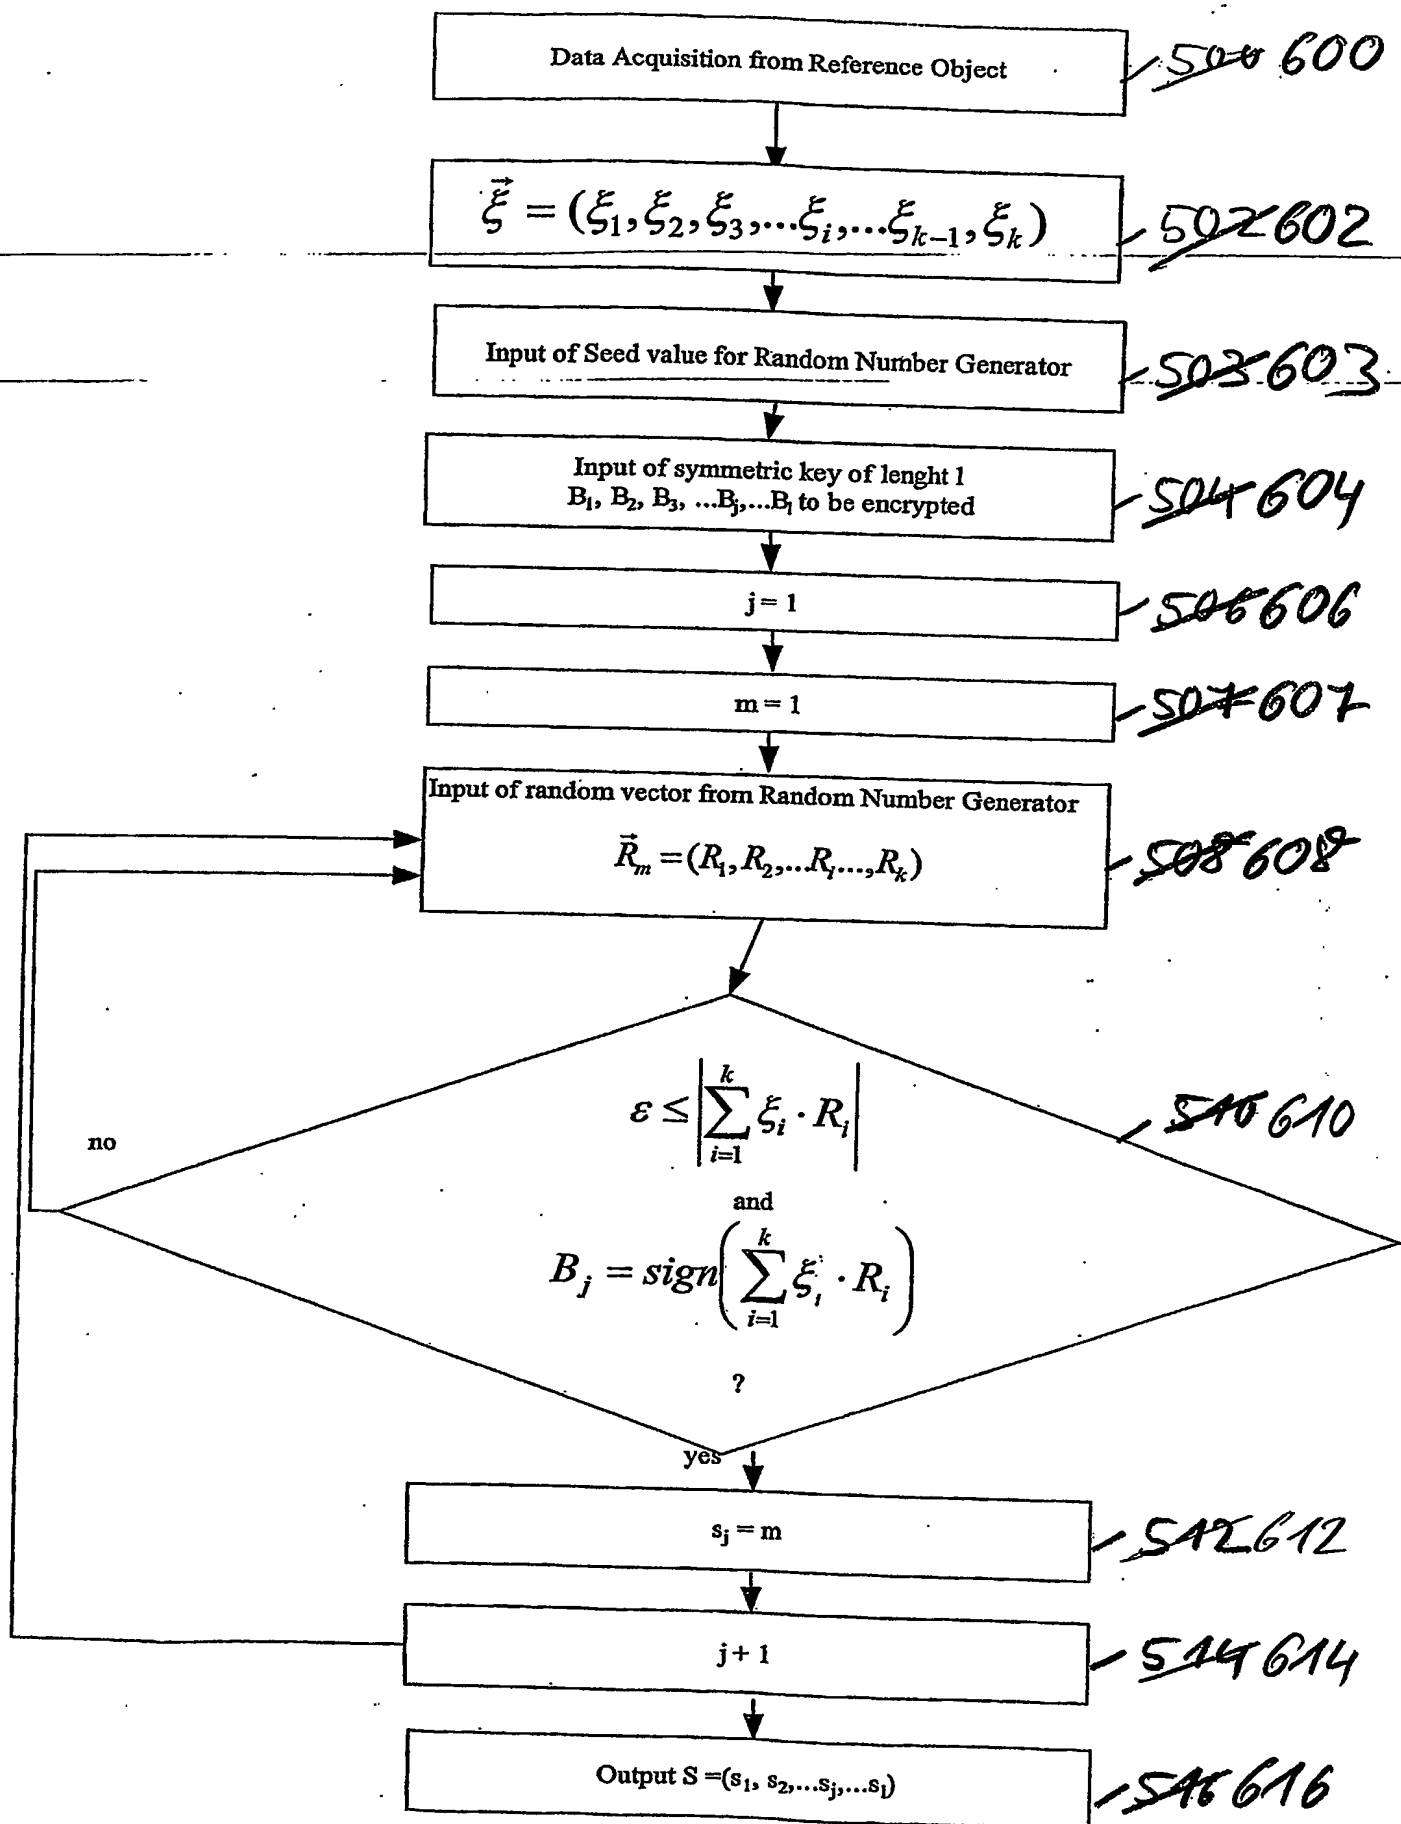 Data Acquisition from Reference Object
500 600
ξ⃗ = (ξ₁, ξ₂, ξ₃, ...ξᵢ, ...ξₖ₋₁, ξₖ)
502 602
Input of Seed value for Random Number Generator
503 603
Input of symmetric key of lenght l
B₁, B₂, B₃, ...Bⱼ,...Bₗ to be encrypted
504 604
j = 1
506 606
m = 1
507 607
Input of random vector from Random Number Generator
R⃗ₘ = (R₁, R₂,...Rᵢ..., Rₖ)
508 608
ε ≤ |∑ᵢ₌₁ᵏ ξᵢ · Rᵢ|
510 610
no
and
Bⱼ = sign(∑ᵢ₌₁ᵏ ξᵢ · Rᵢ)
?
yes
sⱼ = m
512 612
j + 1
514 614
Output S =(s₁, s₂,...sⱼ,...sₗ)
516 616